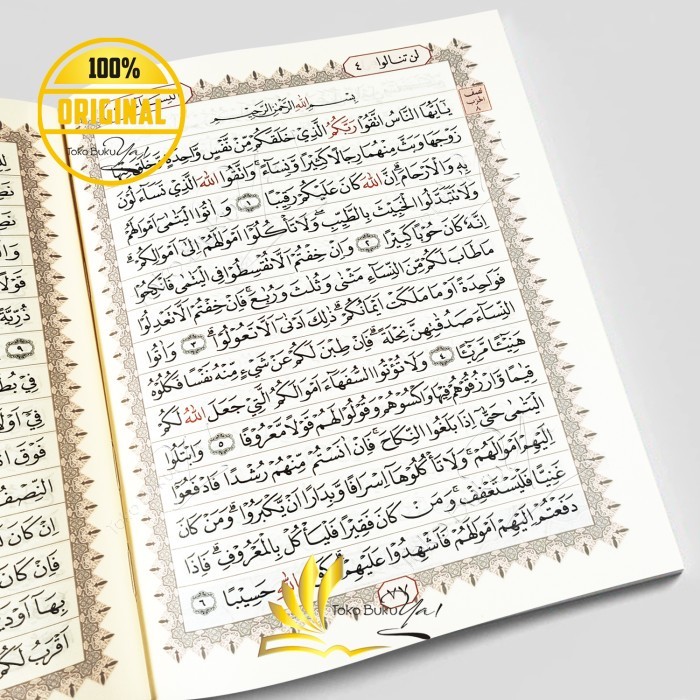 100%
ORIGINAL
Toko Buku Ya!
لن تنالوا ٤
نصف الحزب ٨
بِسْمِ اللهِ الرَّحْمٰنِ الرَّحِيْمِ
يٰٓاَيُّهَا النَّاسُ اتَّقُوْا رَبَّكُمُ الَّذِيْ خَلَقَكُمْ مِّنْ نَّفْسٍ وَّاحِدَةٍ وَّخَلَقَ مِنْهَا
زَوْجَهَا وَبَثَّ مِنْهُمَا رِجَالًا كَثِيْرًا وَّنِسَاۤءً ۚ وَاتَّقُوا اللهَ الَّذِيْ تَسَاۤءَلُوْنَ
بِهٖ وَالْاَرْحَامَ ۗ اِنَّ اللهَ كَانَ عَلَيْكُمْ رَقِيْبًا ١ وَاٰتُوا الْيَتٰمٰىٓ اَمْوَالَهُمْ
وَلَا تَتَبَدَّلُوا الْخَبِيْثَ بِالطَّيِّبِ ۖ وَلَا تَأْكُلُوْٓا اَمْوَالَهُمْ اِلٰٓى اَمْوَالِكُمْ ۗ
اِنَّهٗ كَانَ حُوْبًا كَبِيْرًا ٢ وَاِنْ خِفْتُمْ اَلَّا تُقْسِطُوْا فِى الْيَتٰمٰى فَانْكِحُوْا
مَا طَابَ لَكُمْ مِّنَ النِّسَاۤءِ مَثْنٰى وَثُلٰثَ وَرُبٰعَ ۚ فَاِنْ خِفْتُمْ اَلَّا تَعْدِلُوْا
فَوَاحِدَةً اَوْ مَا مَلَكَتْ اَيْمَانُكُمْ ۗ ذٰلِكَ اَدْنٰىٓ اَلَّا تَعُوْلُوْا ٣ وَاٰتُوا
النِّسَاۤءَ صَدُقٰتِهِنَّ نِحْلَةً ۗ فَاِنْ طِبْنَ لَكُمْ عَنْ شَيْءٍ مِّنْهُ نَفْسًا فَكُلُوْهُ
هَنِيْۤـًٔا مَّرِيْۤـًٔا ٤ وَلَا تُؤْتُوا السُّفَهَاۤءَ اَمْوَالَكُمُ الَّتِيْ جَعَلَ اللهُ لَكُمْ
قِيٰمًا وَّارْزُقُوْهُمْ فِيْهَا وَاكْسُوْهُمْ وَقُوْلُوْا لَهُمْ قَوْلًا مَّعْرُوْفًا ٥ وَابْتَلُوا
الْيَتٰمٰى حَتّٰىٓ اِذَا بَلَغُوا النِّكَاحَ ۚ فَاِنْ اٰنَسْتُمْ مِّنْهُمْ رُشْدًا فَادْفَعُوْٓا
اِلَيْهِمْ اَمْوَالَهُمْ ۚ وَلَا تَأْكُلُوْهَآ اِسْرَافًا وَّبِدَارًا اَنْ يَّكْبَرُوْا ۗ وَمَنْ كَانَ
غَنِيًّا فَلْيَسْتَعْفِفْ ۚ وَمَنْ كَانَ فَقِيْرًا فَلْيَأْكُلْ بِالْمَعْرُوْفِ ۗ فَاِذَا
دَفَعْتُمْ اِلَيْهِمْ اَمْوَالَهُمْ فَاَشْهِدُوْا عَلَيْهِمْ ۗ حَسِيْبًا ٦
Toko Buku Ya!